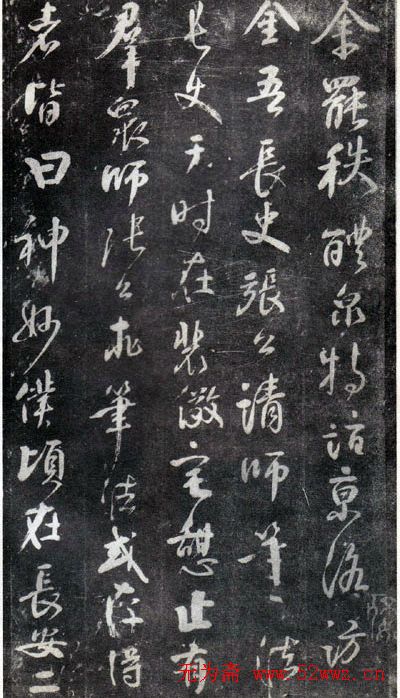 余罷秩醴泉特詣京洛訪
金吾長史張公請師筆法
長史于時在裴儆宅憩止有
羣眾師張公求筆法或存得
者皆曰神妙僕頃在長安二
无为斋 www.52wwz.cn